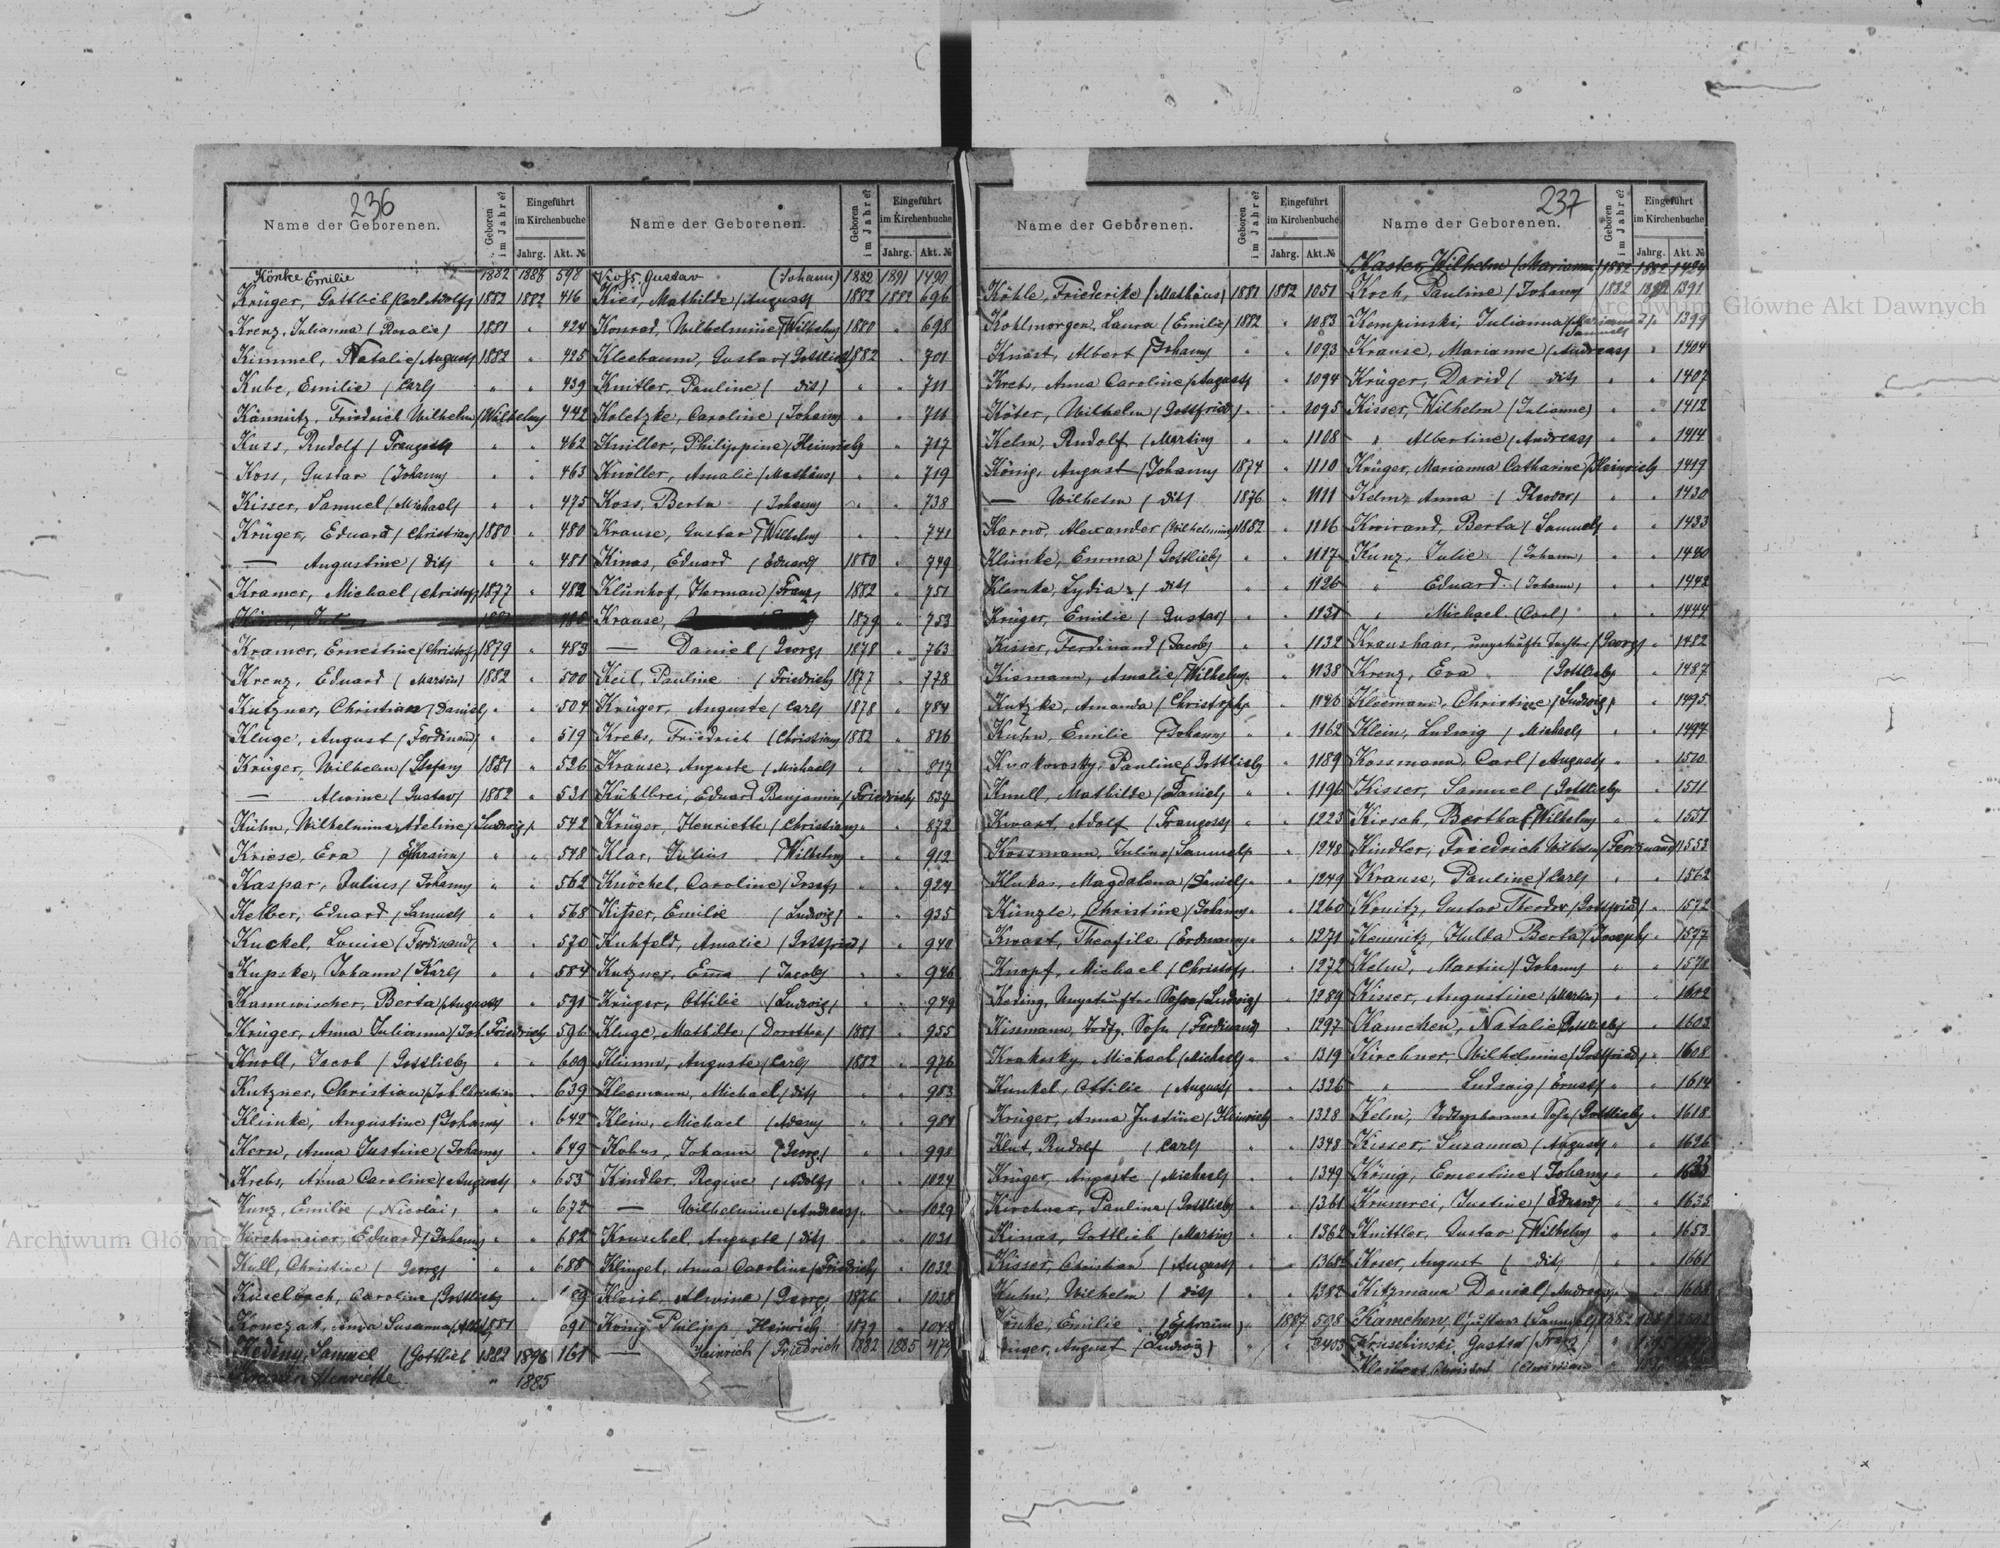 Archiwum Główne Akt Dawnych
236
Name der Geborenen. Geboren im Jahre? Eingeführt im Kirchenbuche Jahrg. Akt. №
Könke Emilie 1882 1888 598
Krüger, Gottlieb (Carl Adolf) 1882 1882 416
Krenz, Julianna (Rosalie) 1881 " 424
Kimmel, Natalie (August) 1882 " 425
Kube, Emilie (Carl) " " 439
Kännitz, Friedrich Wilhelm (Wilhelm) " 442
Kuss, Rudolf (François) " " 462
Koss, Gustav (Johann) " " 463
Kisser, Samuel (Michael) " " 475
Krüger, Eduard (Christian) 1880 " 480
— Augustine (dit) " " 481
Kramer, Michael (Christof) 1877 " 482
Kramer, Ernestine (Christof) 1879 " 483
Krenz, Eduard (Martin) 1882 " 500
Kutzner, Christian (Daniel) " " 504
Kluge, August (Ferdinand) " " 519
Krüger, Wilhelm (Stefan) 1881 " 526
— Alwine (Gustav) 1882 " 531
Kühn, Wilhelmine Adeline (Ludwig) " 542
Kriese, Eva (Ephraim) " " 548
Kaspar, Julius (Johann) " " 562
Kelber, Eduard (Samuel) " " 568
Kuckel, Louise (Ferdinand) " " 570
Kupske, Johann (Karl) " " 584
Kannwischer, Berta (August) " 591
Krüger, Anna Julianna (Joh. Friedrich) 596
Knoll, Jacob (Gottlieb) " " 609
Kutzner, Christian (Joh. Christian) " 639
Klimke, Augustine (Johann) " 642
Kern, Anna Justine (Johann) " 649
Krebs, Anna Caroline (August) " 653
Kunz, Emilie (Nicolai) " " 672
Kirchmeier, Eduard (Johann) " 682
Kull, Christine (Georg) " " 688
Küselbach, Caroline (Gottlieb) " 689
Konczak, Susanna 1881 691
Keding, Samuel (Gottlieb 1882 1896 161
Henriette " 1885
Name der Geborenen. Geboren im Jahre? Eingeführt im Kirchenbuche Jahrg. Akt. №
Gustav (Johann) 1882 1891 1490
Kies, Mathilde (August) 1882 1882 696
Konrad, Wilhelmine (Wilhelm) 1880 " 698
Kleebaum, Gustav (Gottlieb) 1882 " 701
Knitler, Pauline (dit) " " 711
Koletzke, Caroline (Johann) " " 716
Kniller, Philippine (Heinrich) " 717
Knöller, Amalie (Mathäus) " " 719
Koss, Berta (Johann) " " 738
Krause, Gustav (Wilhelm) " " 741
Kinas, Eduard (Eduard) 1880 " 749
Klünhof, Herman (Franz) 1882 " 751
Krause, 1879 " 753
— Daniel (Georg) 1878 " 763
Keil, Pauline (Friedrich) 1877 " 778
Krüger, Auguste (Carl) 1878 " 784
Krebs, Friedrich (Christian) 1882 " 816
Krause, Auguste (Michael) " " 817
Kühllrei, Eduard Benjamin (Friedrich) 837
Krüger, Henriette (Christian) " " 872
Klar, Julius (Wilhelm) " " 912
Knöchel, Caroline (Josef) " " 924
Kisser, Emilie (Ludwig) " " 935
Kuhfeld, Amalie (Gottfried) " " 940
Kutzner, Ema (Jacob) " " 946
Krüger, Ottilie (Ludwig) " " 949
Kluge, Mathilte (Dorothea) 1881 " 955
Klimm, Auguste (Carl) 1882 " 976
Kleemann, Michael (dit) " " 983
Klein, Michael (Adam) " " 984
Kobus, Johann (Georg) " " 998
Kindler, Regine (Adolf) " " 1024
— Wilhelmine (Andreas) " " 1029
Kruschel, Auguste (dit) " " 1031
Klingel, Anna Caroline (Friedrich) " 1032
Kleist, Alwine (Georg) 1876 " 1038
König Philipp Heinrich 1879 " 1048
— Heinrich (Friedrich 1882 1885
237
Name der Geborenen. Geboren im Jahre? Eingeführt im Kirchenbuche Jahrg. Akt. №
Köhle, Friederike (Mathäus) 1881 1882 1051
Kohlmorgen, Laura (Emilie) 1882 " 1083
Knast, Albert (Johann) " " 1093
Kreb, Anna Caroline (August) " 1094
Köter, Wilhelm (Gottfried) " " 1095
Kelm, Rudolf (Martin) " " 1108
König, August (Johann) 1874 " 1110
— Wilhelm (dit) 1876 " 1111
Karow, Alexander (Wilhelmine) 1882 " 1116
Klimke, Emma (Gottlieb) " " 1117
Klimke, Lydia (dit) " " 1126
Krüger, Emilie (Gustav) " " 1131
Kisser, Ferdinand (Jacob) " " 1132
Kismann, Amalie (Wilhelm) " " 1138
Kutzke, Amanda (Christoph) " 1146
Kuhn, Emilie (Johann) " " 1162
Krakowsky, Pauline (Gottlieb) " 1189
Knull, Mathilde (Daniel) " " 1196
Kwast, Adolf (François) " " 1223
Kossmann, Julius (Samuel) " " 1248
Klukas, Magdalena (Daniel) " " 1249
Künzle, Christine (Johann) " " 1260
Kwast, Theofile (Erdmann) " " 1271
Knopf, Michael (Christof) " " 1272
Keding, Ungetaufter Sohn (Ludwig) " 1289
Kissmann, Todtg. Sohn (Ferdinand) " 1297
Krakosky, Michael (Michael) " " 1319
Kunkel, Ottilie (August) " " 1326
Krüger, Anna Justine (Heinrich) " 1328
Klut, Rudolf (Carl) " " 1348
Krüger, Auguste (Michael) " " 1349
Kirchner, Pauline (Gottlieb) " " 1361
Kinas, Gottlieb (Martin) " " 1362
Kisser, Christian (August) " " 1368
Kuhn, Wilhelm (dit) " " 1382
Könke, Emilie (Efraim) " 1887 598
Krüger, August (Ludwig) " " 2403
Name der Geborenen. Geboren im Jahre? Eingeführt im Kirchenbuche Jahrg. Akt. №
Kaster, Wilhelm (Marianna) 1882 1882 1484
Koch, Pauline (Johann) 1882 1882 1391
Kempinski, Julianna " 1399
Krause, Marianne (Andreas) " 1404
Krüger, David (dit) " " 1407
Kisser, Wilhelm (Julianne) " " 1412
" Albertine (Andreas) " " 1414
Krüger, Marianna Catharine (Heinrich) 1419
Kelm, Anna (Theodor) " " 1430
Kwirand, Berta (Samuel) " " 1433
Kunz, Julie (Johann) " " 1440
" Eduard (Johann) " " 1442
" Michael (Carl) " " 1444
Kraushaar, ungetaufte Tochter (Georg) " 1482
Krenz, Eva (Gottlieb) " 1487
Kleemann, Christine (Ludwig) " 1495
Klein, Ludwig (Michael) " " 1497
Kossmann, Carl (August) " " 1510
Kisser, Samuel (Gottlieb) " " 1511
Kirsch, Bertha (Wilhelm) " " 1551
Kindler, Friedrich Wilhelm (Ferdinand) 1553
Krause, Pauline (Carl) " " 1562
Konitz, Gustav Theodor (Gottfried) " 1572
Kemnitz, Hulda Berta (Joseph) " 1577
Kelm, Martin (Johann) " " 1578
Kisser, Augustine (Martin) " " 1602
Kamchen, Natalie (Gottlieb) " " 1603
Kirchner, Wilhelmine (Gottfried) " 1608
" Ludwig (Ernst) " " 1614
Kelm, Todtgeborener Sohn (Gottlieb) " 1618
Kisser, Susanna (August) " " 1626
König, Ernestine (Johann) " " 1633
Krumrei, Justine (Eduard) " " 1635
Knittler, Gustav (Wilhelm) " " 1653
Koser, August (dit) " " 1661
Kitzmann Daniel (Andreas) " 1668
Kämchen, Gustav (Samuel) 1882
Kruschinski, Gustav (Franz)
Christof (Christian
Archiwum Główne Akt Dawnych